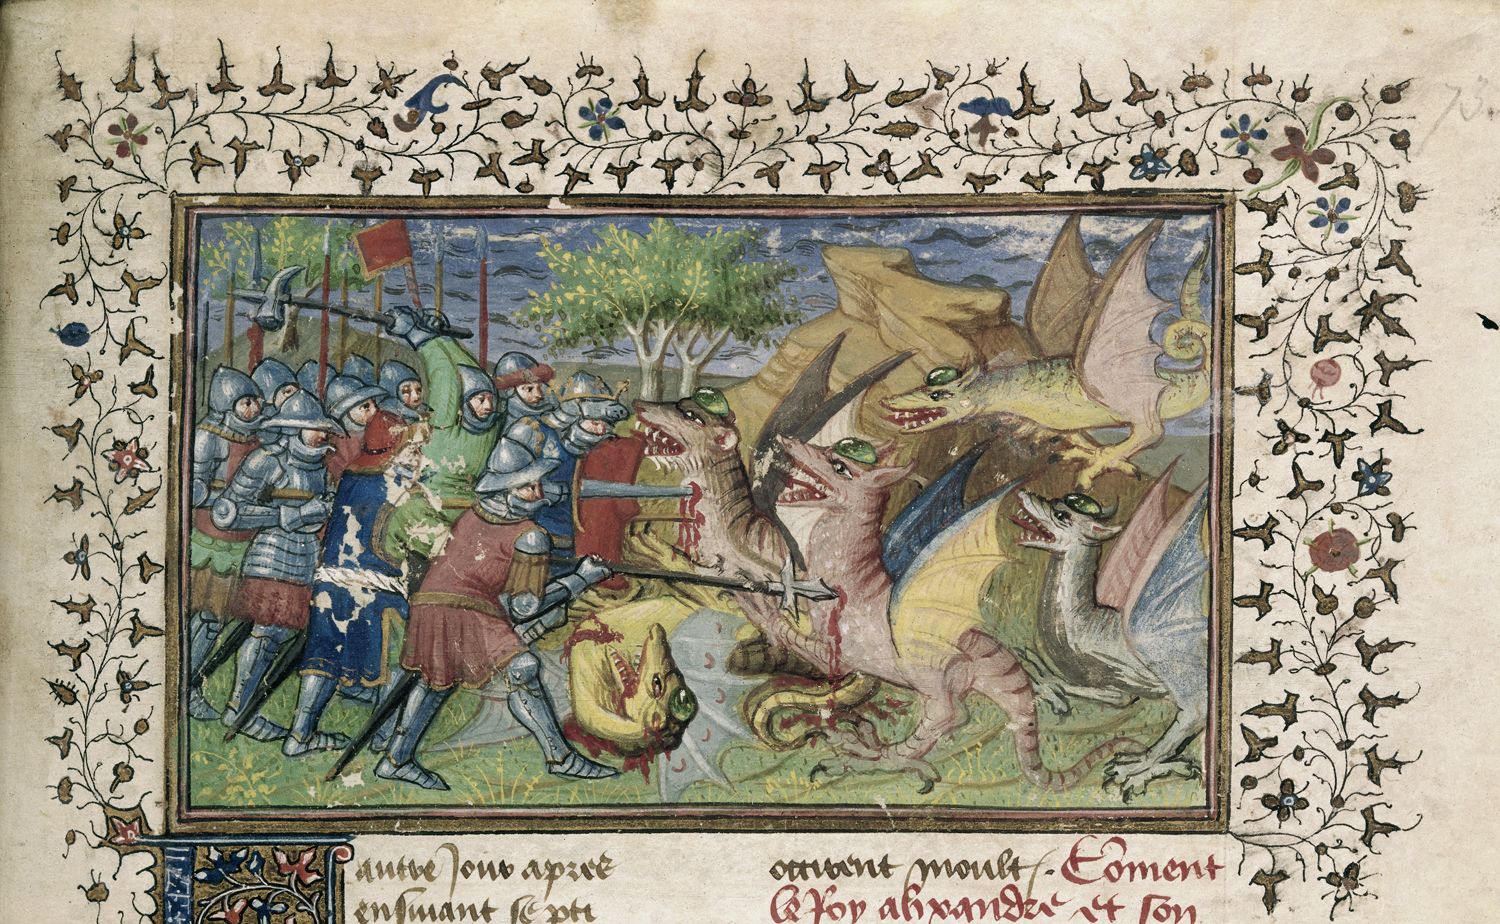 73.
autre jour apres
ensuivant se pti
occirent moult. Coment
le Roy alixandre et son